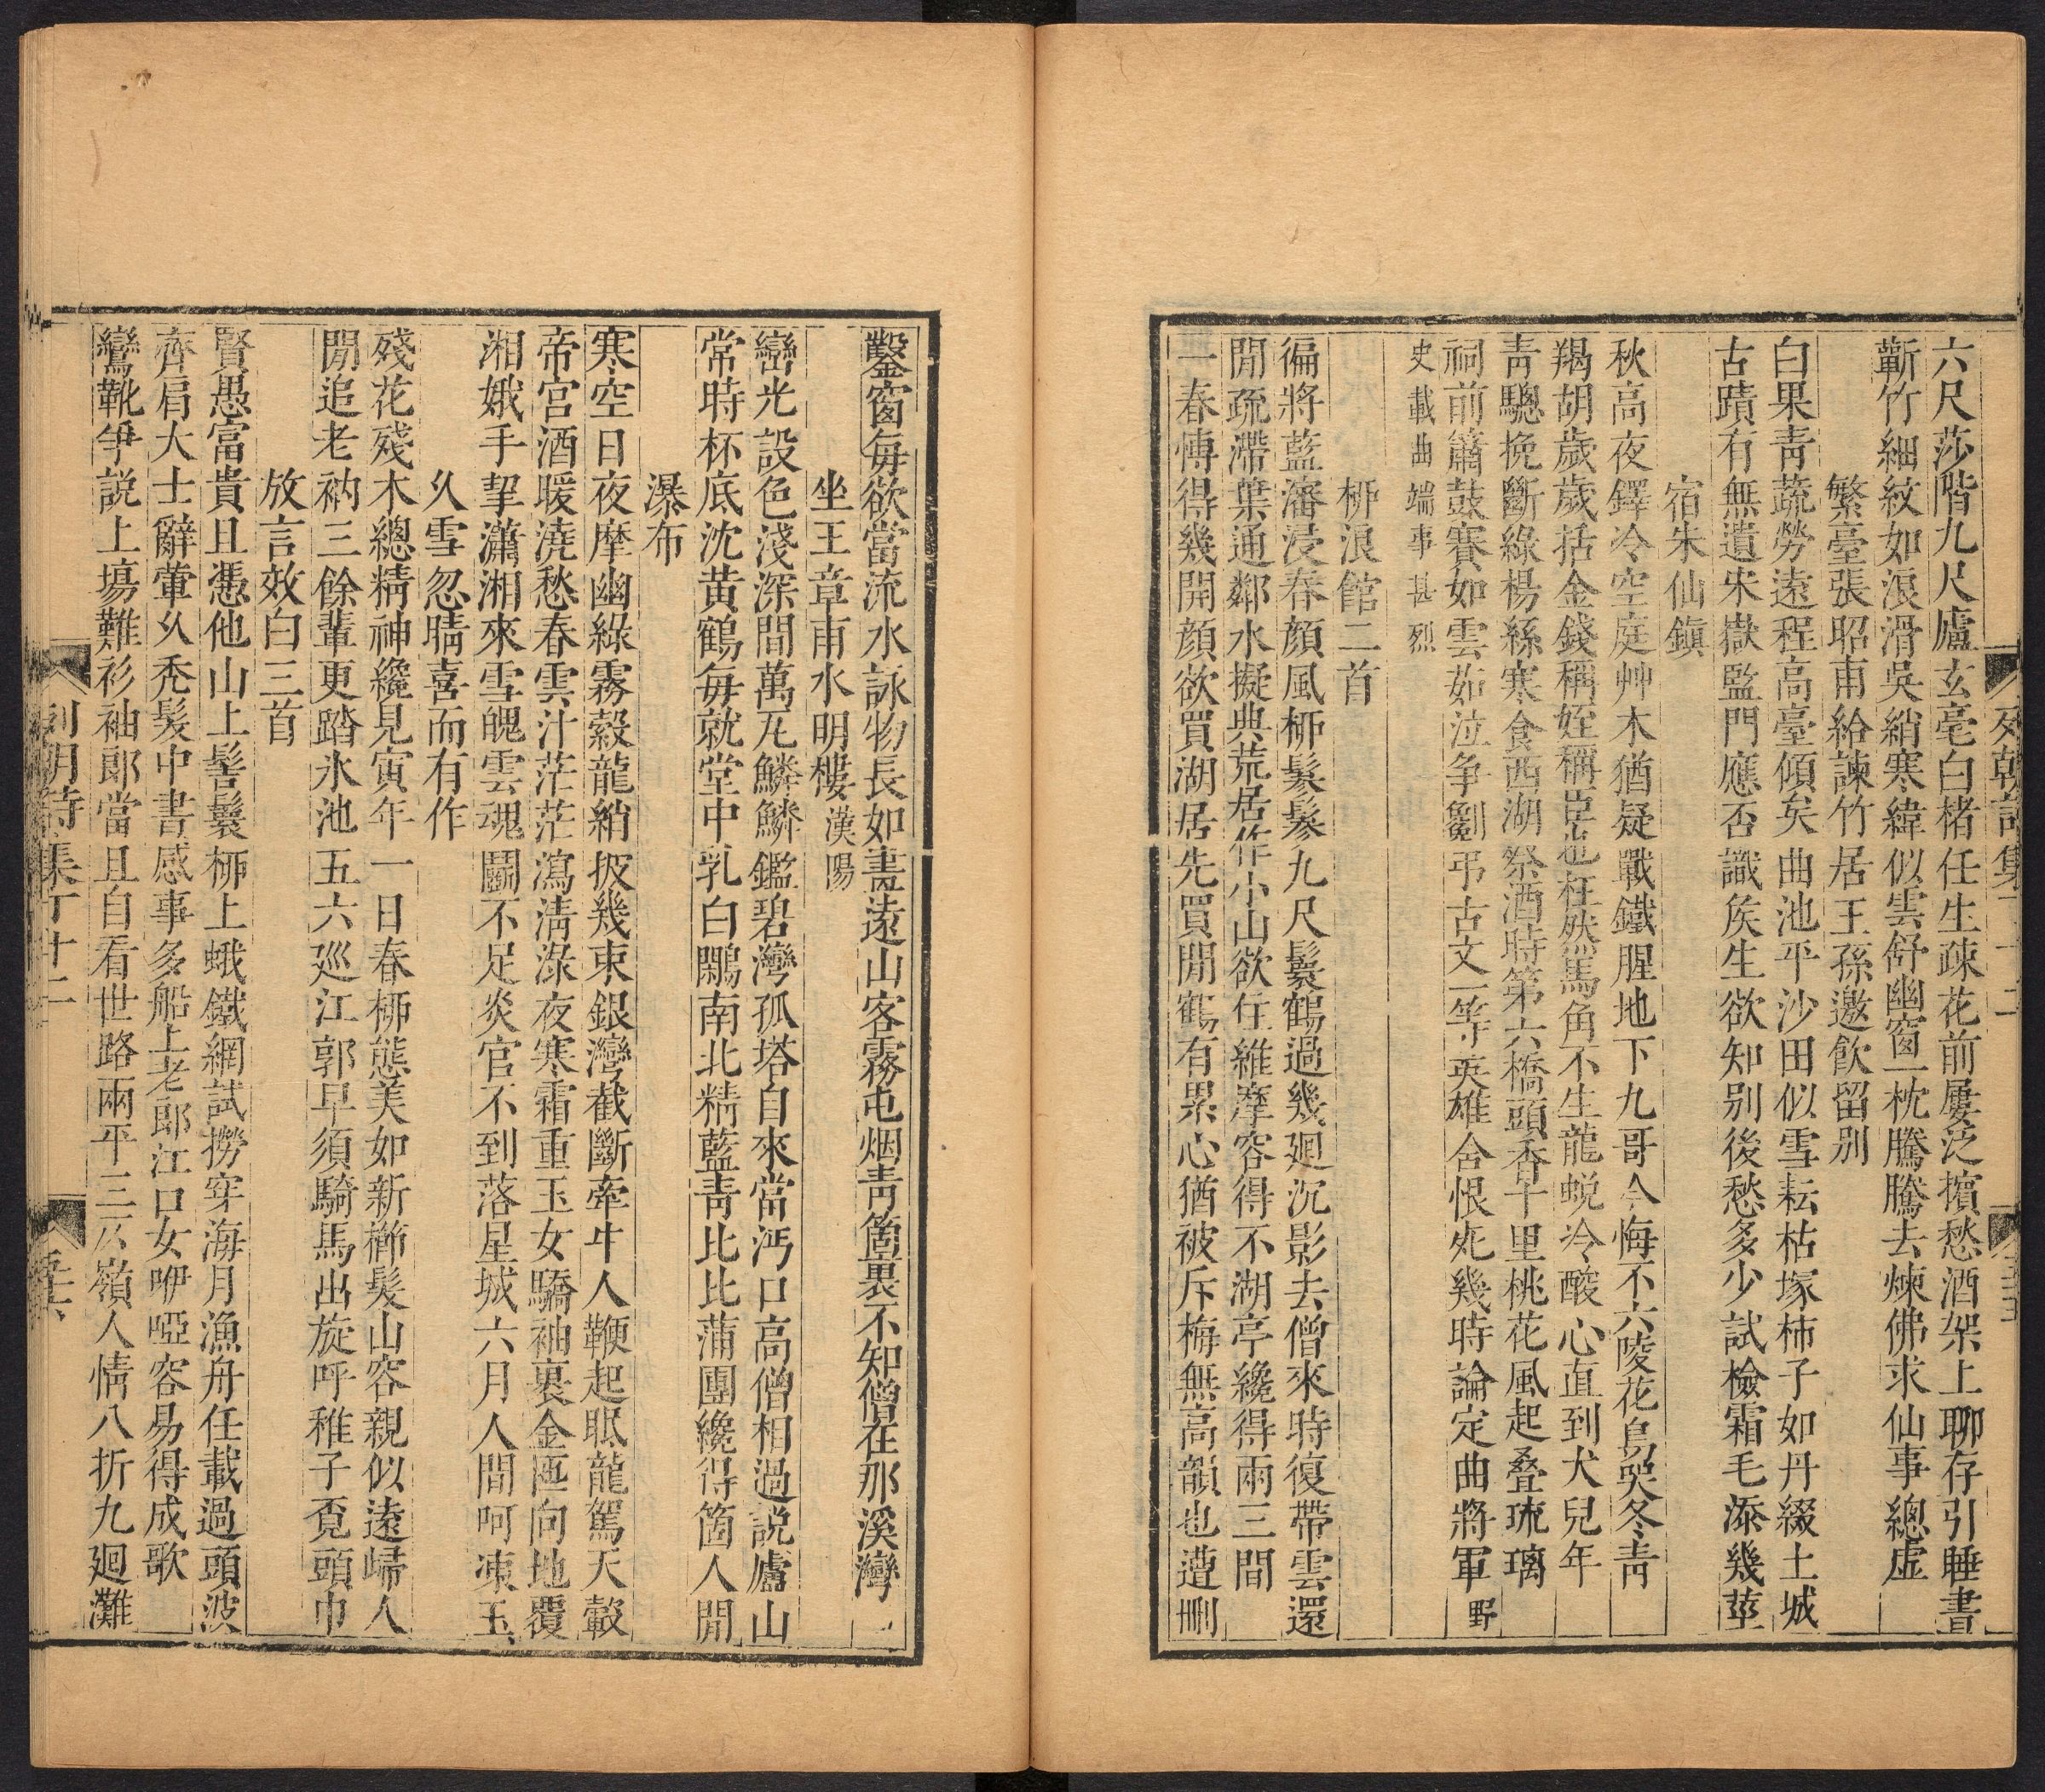 六尺莎階九尺廬玄亳白楮任生疎花前屢泛擯愁酒架上聊存引睡書
蘄竹細紋如浪滑吳綃寒緯似雲舒幽窗一枕騰騰去煉佛求仙事總虛
繁臺張昭甫給諫竹居王孫邀飲留别
白果靑蔬勞遠程高臺傾矣曲池平沙田似雪耘枯塚柿子如丹綴土城
古蹟有無遺宋嶽監門應否識矦生欲知别後愁多少試檢霜毛添幾莖
宿朱仙鎭
秋高夜鐸冷空庭艸木猶疑戰鐵腥地下九哥今悔不六陵花鳥哭冬靑
羯胡歲歲括金錢稱姪稱臣也枉然馬角不生龍蛻冷酸心直到犬兒年
靑驄挽斷綠楊絲寒食西湖祭酒時第六橋頭香十里桃花風起叠琉璃
祠前簫鼓賽如雲茹泣争劉弔古文一等英雄含恨死幾時論定曲將軍野
史載曲端事甚烈
桺浪館二首
徧將藍瀋浸春顔風桺鬖鬖九尺鬟鶴過幾廻沉影去僧來時復帶雲還
閒疏滯葉通鄰水擬典荒居作小山欲住維摩容得不湖亭纔得兩三間
一春博得幾開顔欲買湖居先買閒鶴有累心猶被斥梅無高韻也遭刪
列朝詩集丁十二
鑿窗每欲當流水詠物長如畫遠山客霧屯烟靑箇裏不知僧在那溪灣
坐王章甫水明樓漢陽
巒光設色淺深間萬瓦鱗鱗鑑碧灣孤塔自來當沔口高僧相過説廬山
常時杯底沈黄鶴每就堂中乳白鷴南北精藍靑比比蒲團纔得箇人閒
瀑布
寒空日夜摩幽綠霧縠龍綃披幾束銀灣截斷牽牛人鞭起眠龍駕天轂
帝宮酒暖澆愁春雲汁茫茫瀉淸淥夜寒霜重玉女驕袖裏金匜向地覆
湘娥手挈瀟湘來雪魄雲魂鬭不足炎官不到落星城六月人間呵凍玉
久雪忽晴喜而有作
殘花殘木總精神纔見寅年一日春桺態美如新櫛髮山容親似遠歸人
閒追老衲三餘輩更踏氷池五六廵江郭早須騎馬出旋呼稚子覓頭巾
放言效白三首
賢愚富貴且憑他山上髻鬟桺上蛾鐵網試撈穿海月漁舟任載過頭波
齊肩大士辭葷久禿髮中書感事多船上老郎江口女咿啞容易得成歌
鸞靴爭説上塲難衫袖郎當且自看世路兩平三仄嶺人情八折九廻灘
列朝詩集丁十二